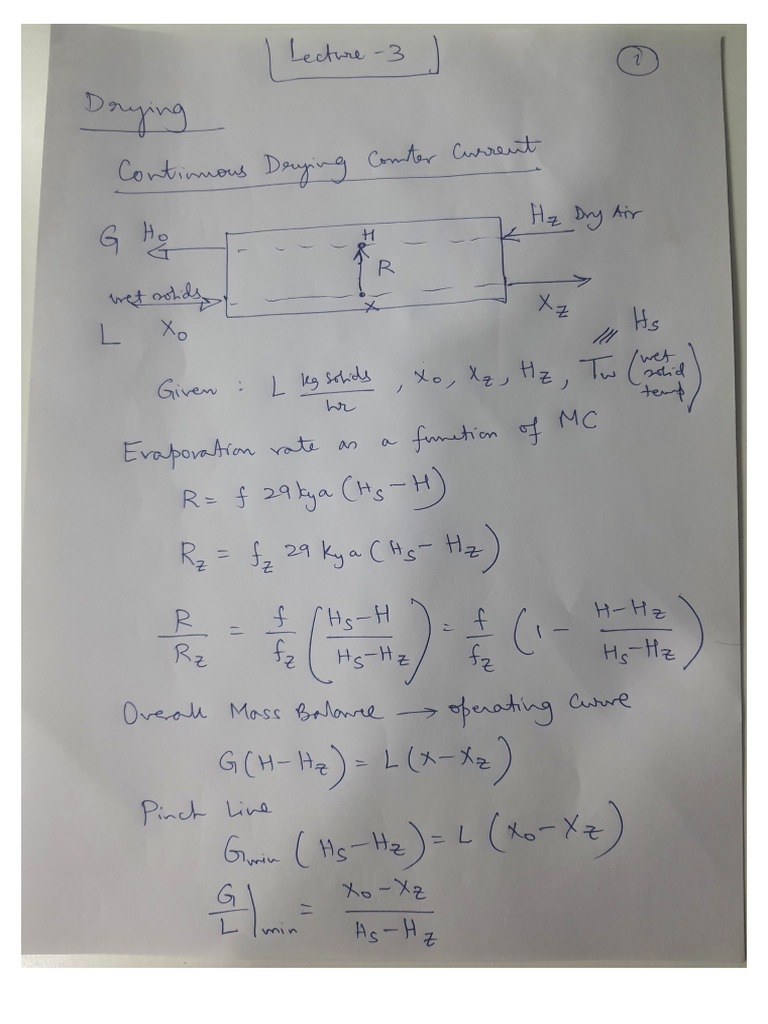 Lecture - 3
1
Drying
Continuous Drying Counter Current
G H₀
H_Z Dry Air
H
R
X
wet solids
L X₀
X_Z
/// H_S
Given : L kg solids/hr , X₀, X_Z, H_Z, T_w (wet solid temp)
Evaporation rate as a function of MC
R = f 29 kya (H_S - H)
R_Z = f_Z 29 kya (H_S - H_Z)
R/R_Z = f/f_Z ((H_S - H)/(H_S - H_Z)) = f/f_Z (1 - (H - H_Z)/(H_S - H_Z))
Overall Mass Balance → operating curve
G (H - H_Z) = L (X - X_Z)
Pinch Line
G_min (H_S - H_Z) = L (X₀ - X_Z)
G/L |min = (X₀ - X_Z)/(H_S - H_Z)